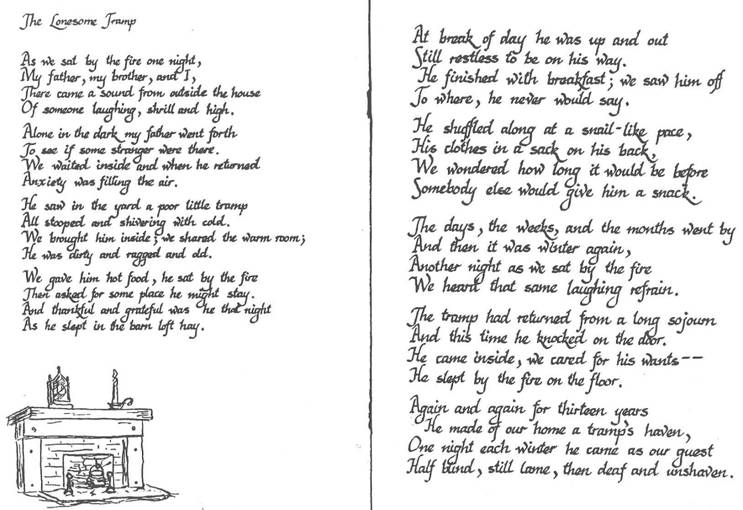 The Lonesome Tramp
As we sat by the fire one night,
My father, my brother, and I,
There came a sound from outside the house
Of someone laughing, shrill and high.
Alone in the dark my father went forth
To see if some stranger were there.
We waited inside and when he returned
Anxiety was filling the air.
He saw in the yard a poor little tramp
All stooped and shivering with cold.
We brought him inside; we shared the warm room;
He was dirty and ragged and old.
We gave him hot food, he sat by the fire
Then asked for some place he might stay.
And thankful and grateful was he that night
As he slept in the barn loft hay.
At break of day he was up and out
Still restless to be on his way.
He finished with breakfast; we saw him off
To where, he never would say.
He shuffled along at a snail-like pace,
His clothes in a sack on his back,
We wondered how long it would be before
Somebody else would give him a snack.
The days, the weeks, and the months went by
And then it was winter again,
Another night as we sat by the fire
We heard that same laughing refrain.
The tramp had returned from a long sojourn
And this time he knocked on the door.
He came inside, we cared for his wants--
He slept by the fire on the floor.
Again and again for thirteen years
He made of our home a tramp's haven,
One night each winter he came as our guest
Half blind, still lame, then deaf and unshaven.